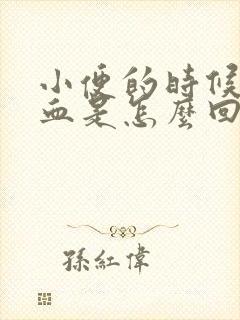 小便的時候
血是怎麼回
孫紅偉